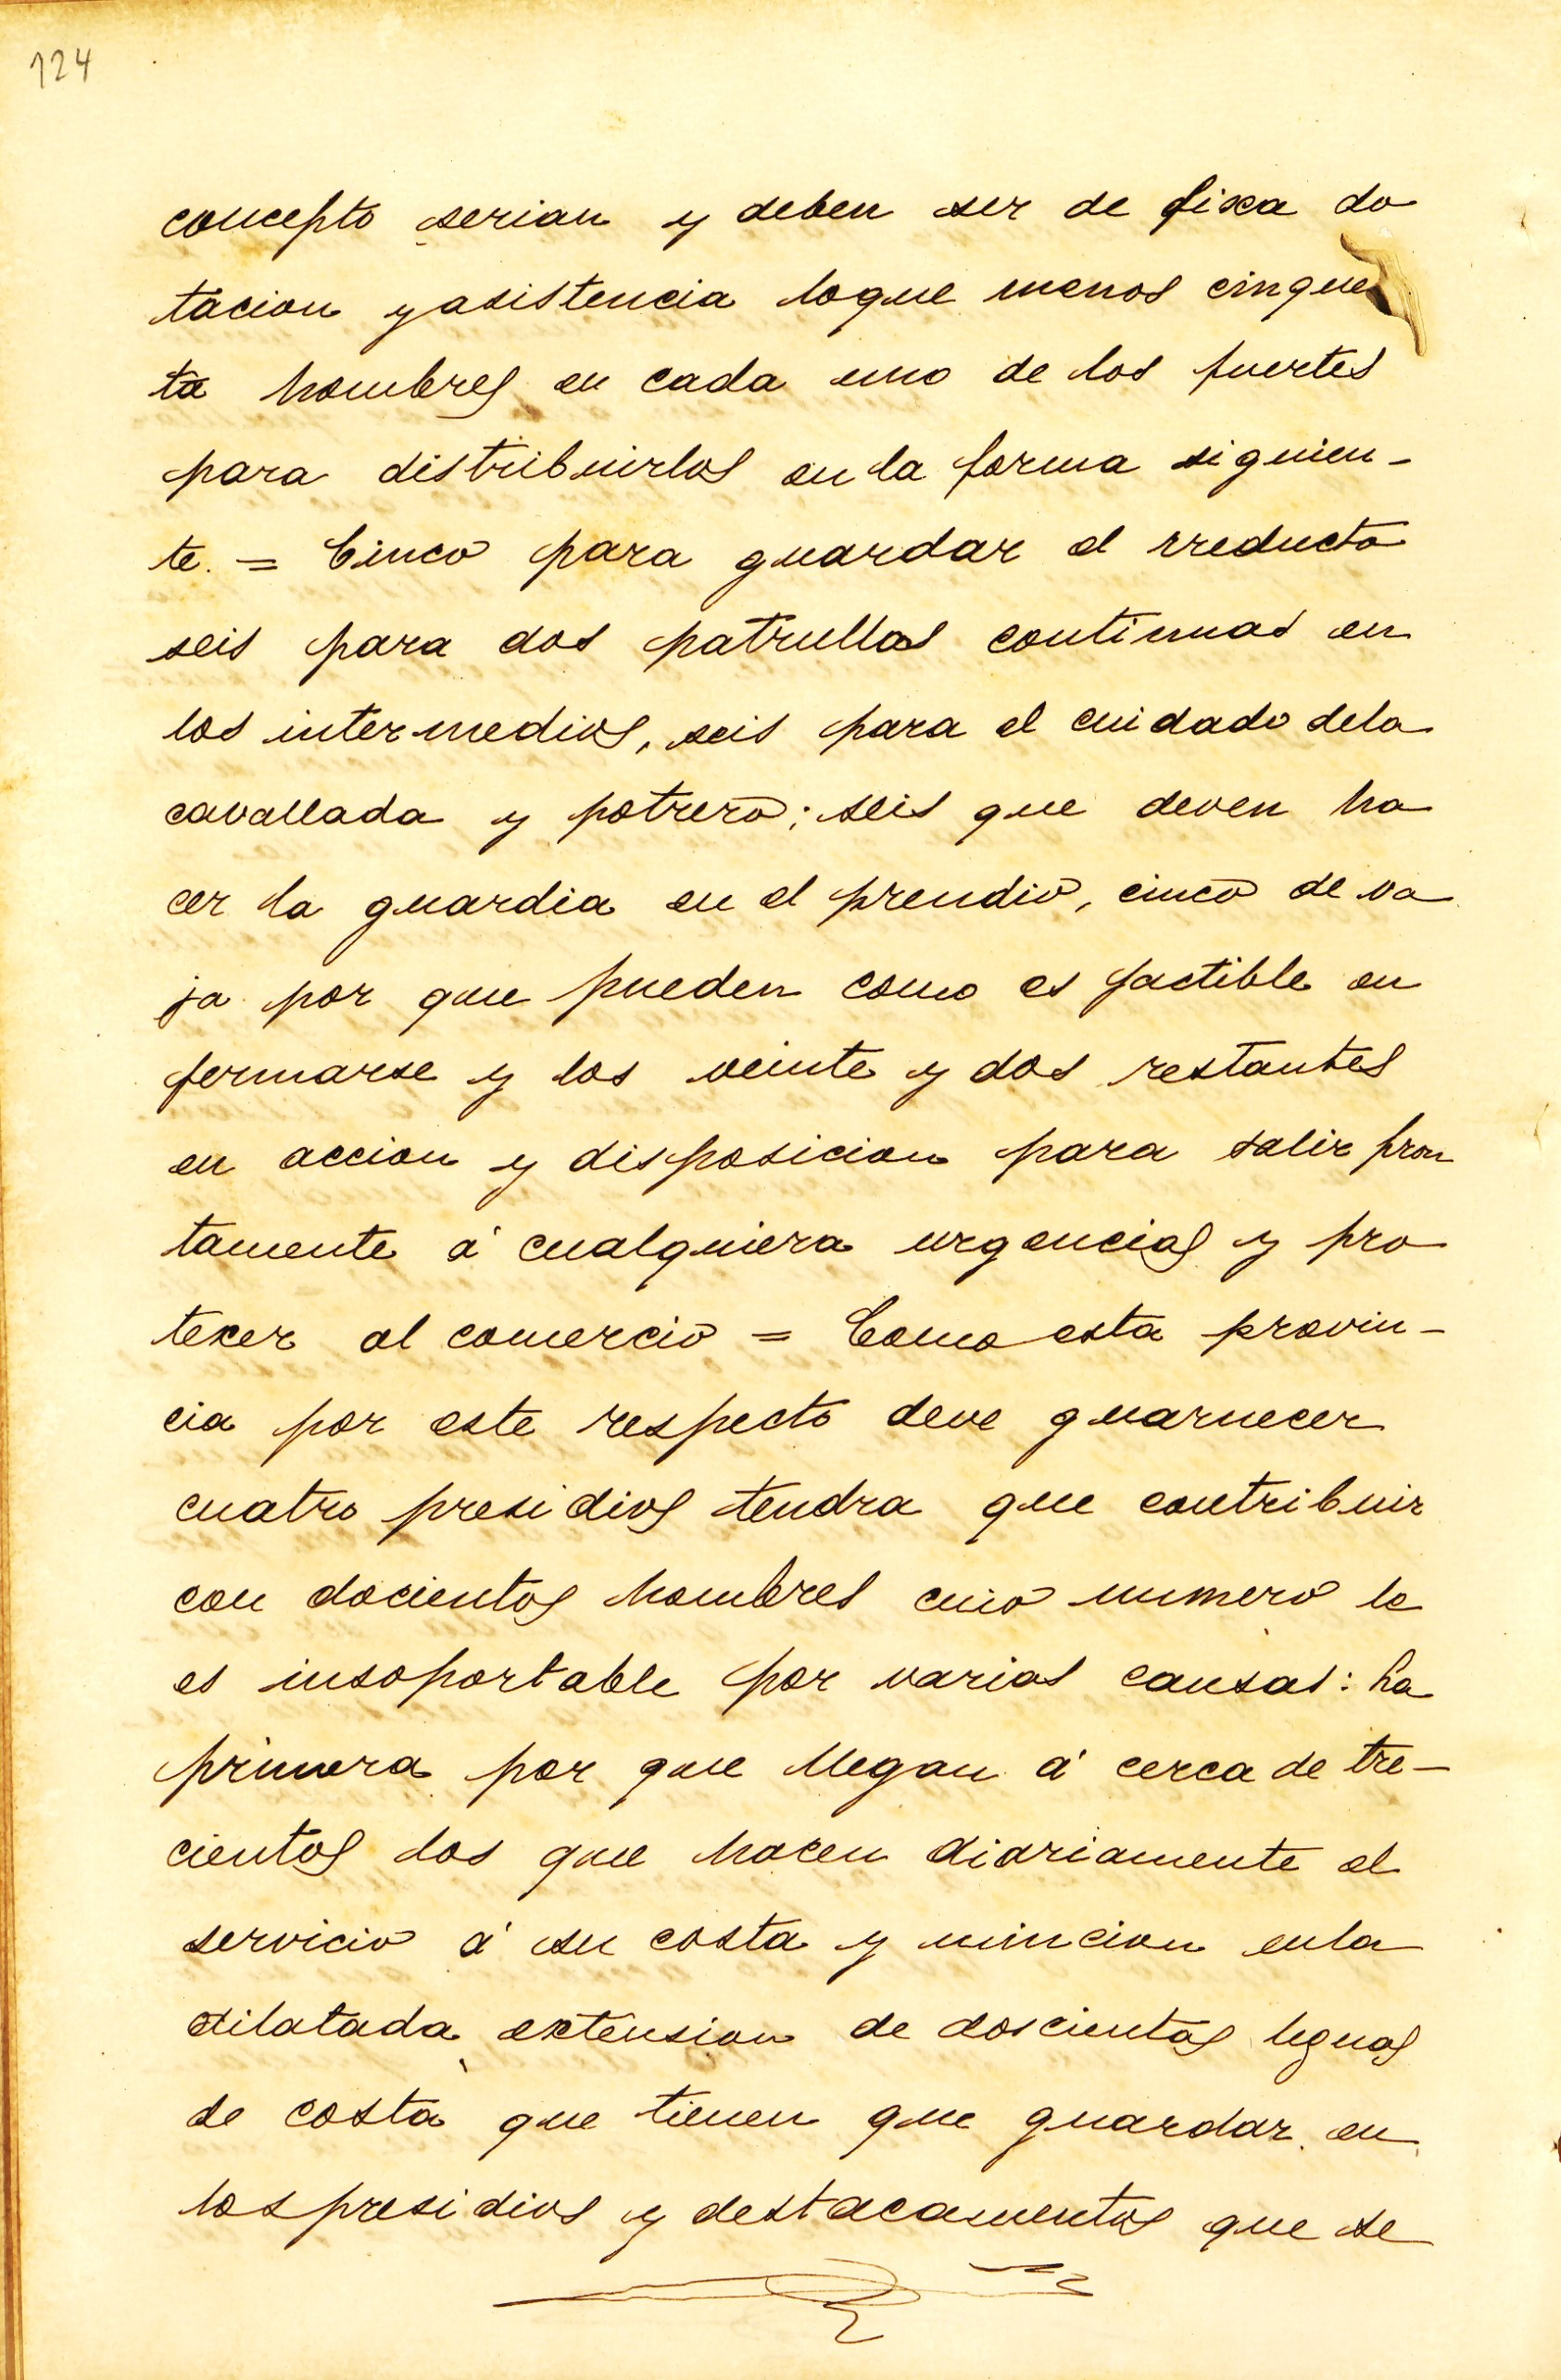 124
concepto serian y deben ser de fixa do
tacion y asistencia loque menos cinquen
ta hombres en cada uno de los fuertes
para distribuirlos en la forma siguien-
te. = Cinco para guardar el rreducto
seis para dos patrullas continuas en
los intermedios, seis para el cuidado dela
cavallada y potrero; seis que deven ha
cer la guardia en el prendio, cinco de va
ja por que pueden como es factible en
fermarse y los veinte y dos restantes
en accion y disposicion para salir pron
tamente á cualquiera urgencias y pro
texer al comercio = Como esta provin-
cia por este respecto deve guarnecer
cuatro presidios tendra que contribuir
con docientos hombres cuio numero le
es insoportable por varias causas: La
primera por que llegan á cerca de tre-
cientos los que hacen diariamente el
servicio á su costa y mincion enla
dilatada extension de doscientas leguas
de costa que tienen que guardar en
los presidios y destacamentos que se